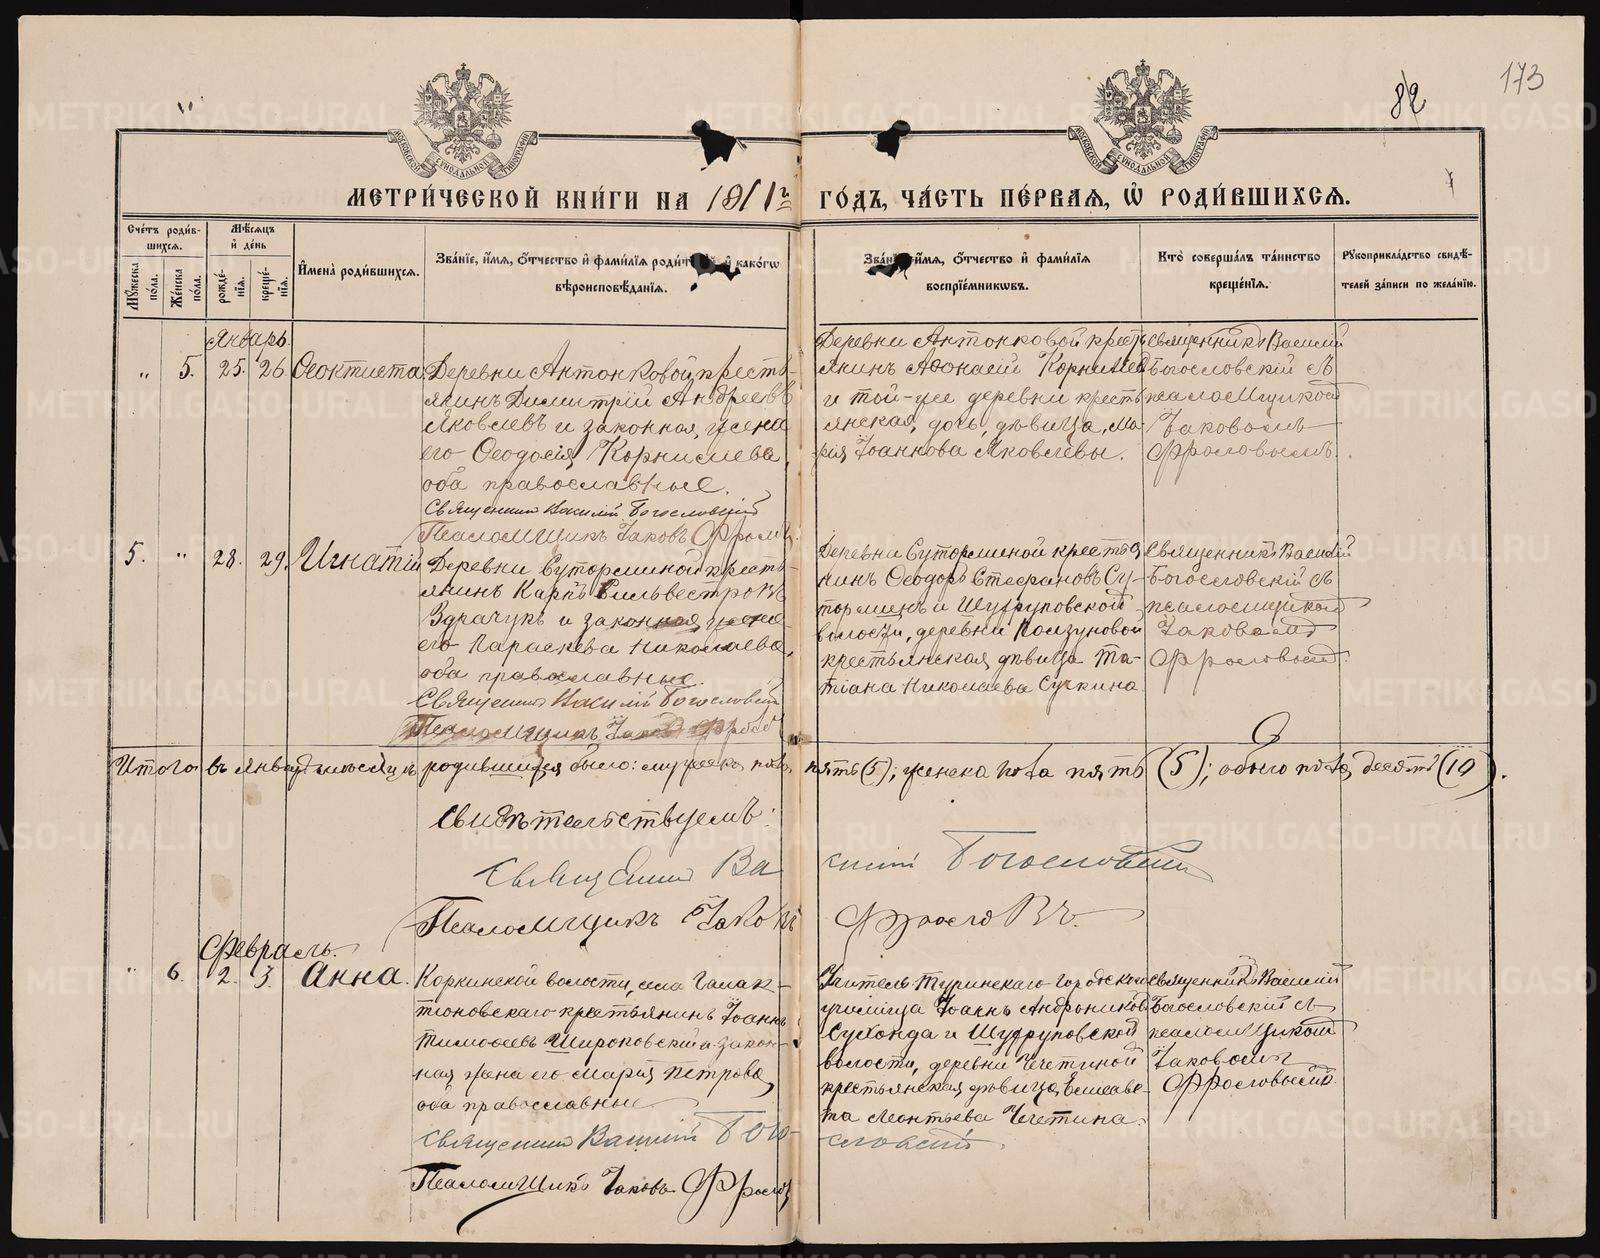 173
82
МЕТРИ́ЧЕСКОЙ КНИ́ГИ НА 1911 г. ГО́ДЪ, ЧА́СТЬ ПЕ́РВАѦ, Ѡ҆ РОДИ́ВШИХСѦ.
Сче́тъ роди́в-
шихсѧ.
Мѣ́сѧцъ
и҆ де́нь
Мꙋ́жеска по́ла.
Же́нска по́ла.
рожде́нїѧ.
креще́нїѧ.
И҆мена̀ роди́вшихсѧ.
Зва́нїе, и҆́мѧ, ѻ҆́тчество и҆ фами́лїѧ роди́т и҆ како́гѡ
вѣроисповѣ́данїѧ.
Зва́нїе, и҆́мѧ, ѻ҆́тчество и҆ фами́лїѧ
воспрїе́мникѡвъ.
Кто̀ соверша́лъ та́инство
креще́нїѧ.
Рꙋкоприкла́дство свидѣ́-
телей за́писи по жела́нїю.
Январь.
„ 5. 25. 26 Ѳеоктиста
Деревни Антонковой, кресть-
янинъ Димитрій Андреевъ
Яковлевъ и законная жена
его Ѳеодосія Корнилиева,
оба православные.
Священникъ Василій Богословскій
Псаломщикъ Іаковъ Фроловъ
Деревни Антонковой кресть-
янинъ Аѳонасій
и той-же деревни кресть-
янская дочь, дѣвица, Ма-
рія Іоаннова Яковлевы.
Священникъ Василій
Богословскій съ
псаломщикомъ
Іаковомъ
Фроловымъ.
5. „ 28. 29. Игнатій
Деревни Суторминой кресть-
янинъ Карпъ Сильвестровъ
Здрачукъ и законная жена
его Параскева Николаева,
оба православные.
Священникъ Василій Богословскій
Псаломщикъ Іаковъ Фроловъ
Деревни Суторминой кресть-
нинъ Ѳеодоръ Стефановъ Су-
торминъ и Шуфруповской
волости, деревни Ползуновой
крестьянская дѣвица Та-
тіана Николаева Сучкина
Священникъ Василій
Богословскій съ
псаломщикомъ
Іаковомъ
Фроловымъ.
Итого въ январѣ мѣсяцѣ родившихся было: мужеска пола пять (5); женска пола пять (5); обоего пола десять (10).
Свидѣтельствуемъ:
Священникъ Василій Богословскій
Псаломщикъ Іаковъ Фроловъ.
Февраль.
„ 6. 2. 3. Анна.
Коркинской волости, села Галак-
тіоновскаго крестьянинъ Іоаннъ
Тимоѳеевъ Широковскій и закон-
ная жена его Марія Петрова,
оба православные
Священникъ Василій Бого-
словскій.
Псаломщикъ Іаковъ Фроловъ
Учитель Туринскаго городского
училища Іоаннъ Андрониковъ
Сухонда и Шуфруповской
волости, деревни Чечтиной
крестьянская дѣвица, Елисаве-
та Леонтьева Чечтина.
Священникъ Василій
Богословскій съ
псаломщикомъ
Іаковомъ
Фроловымъ.
METRIKI.GASO-URAL.RU